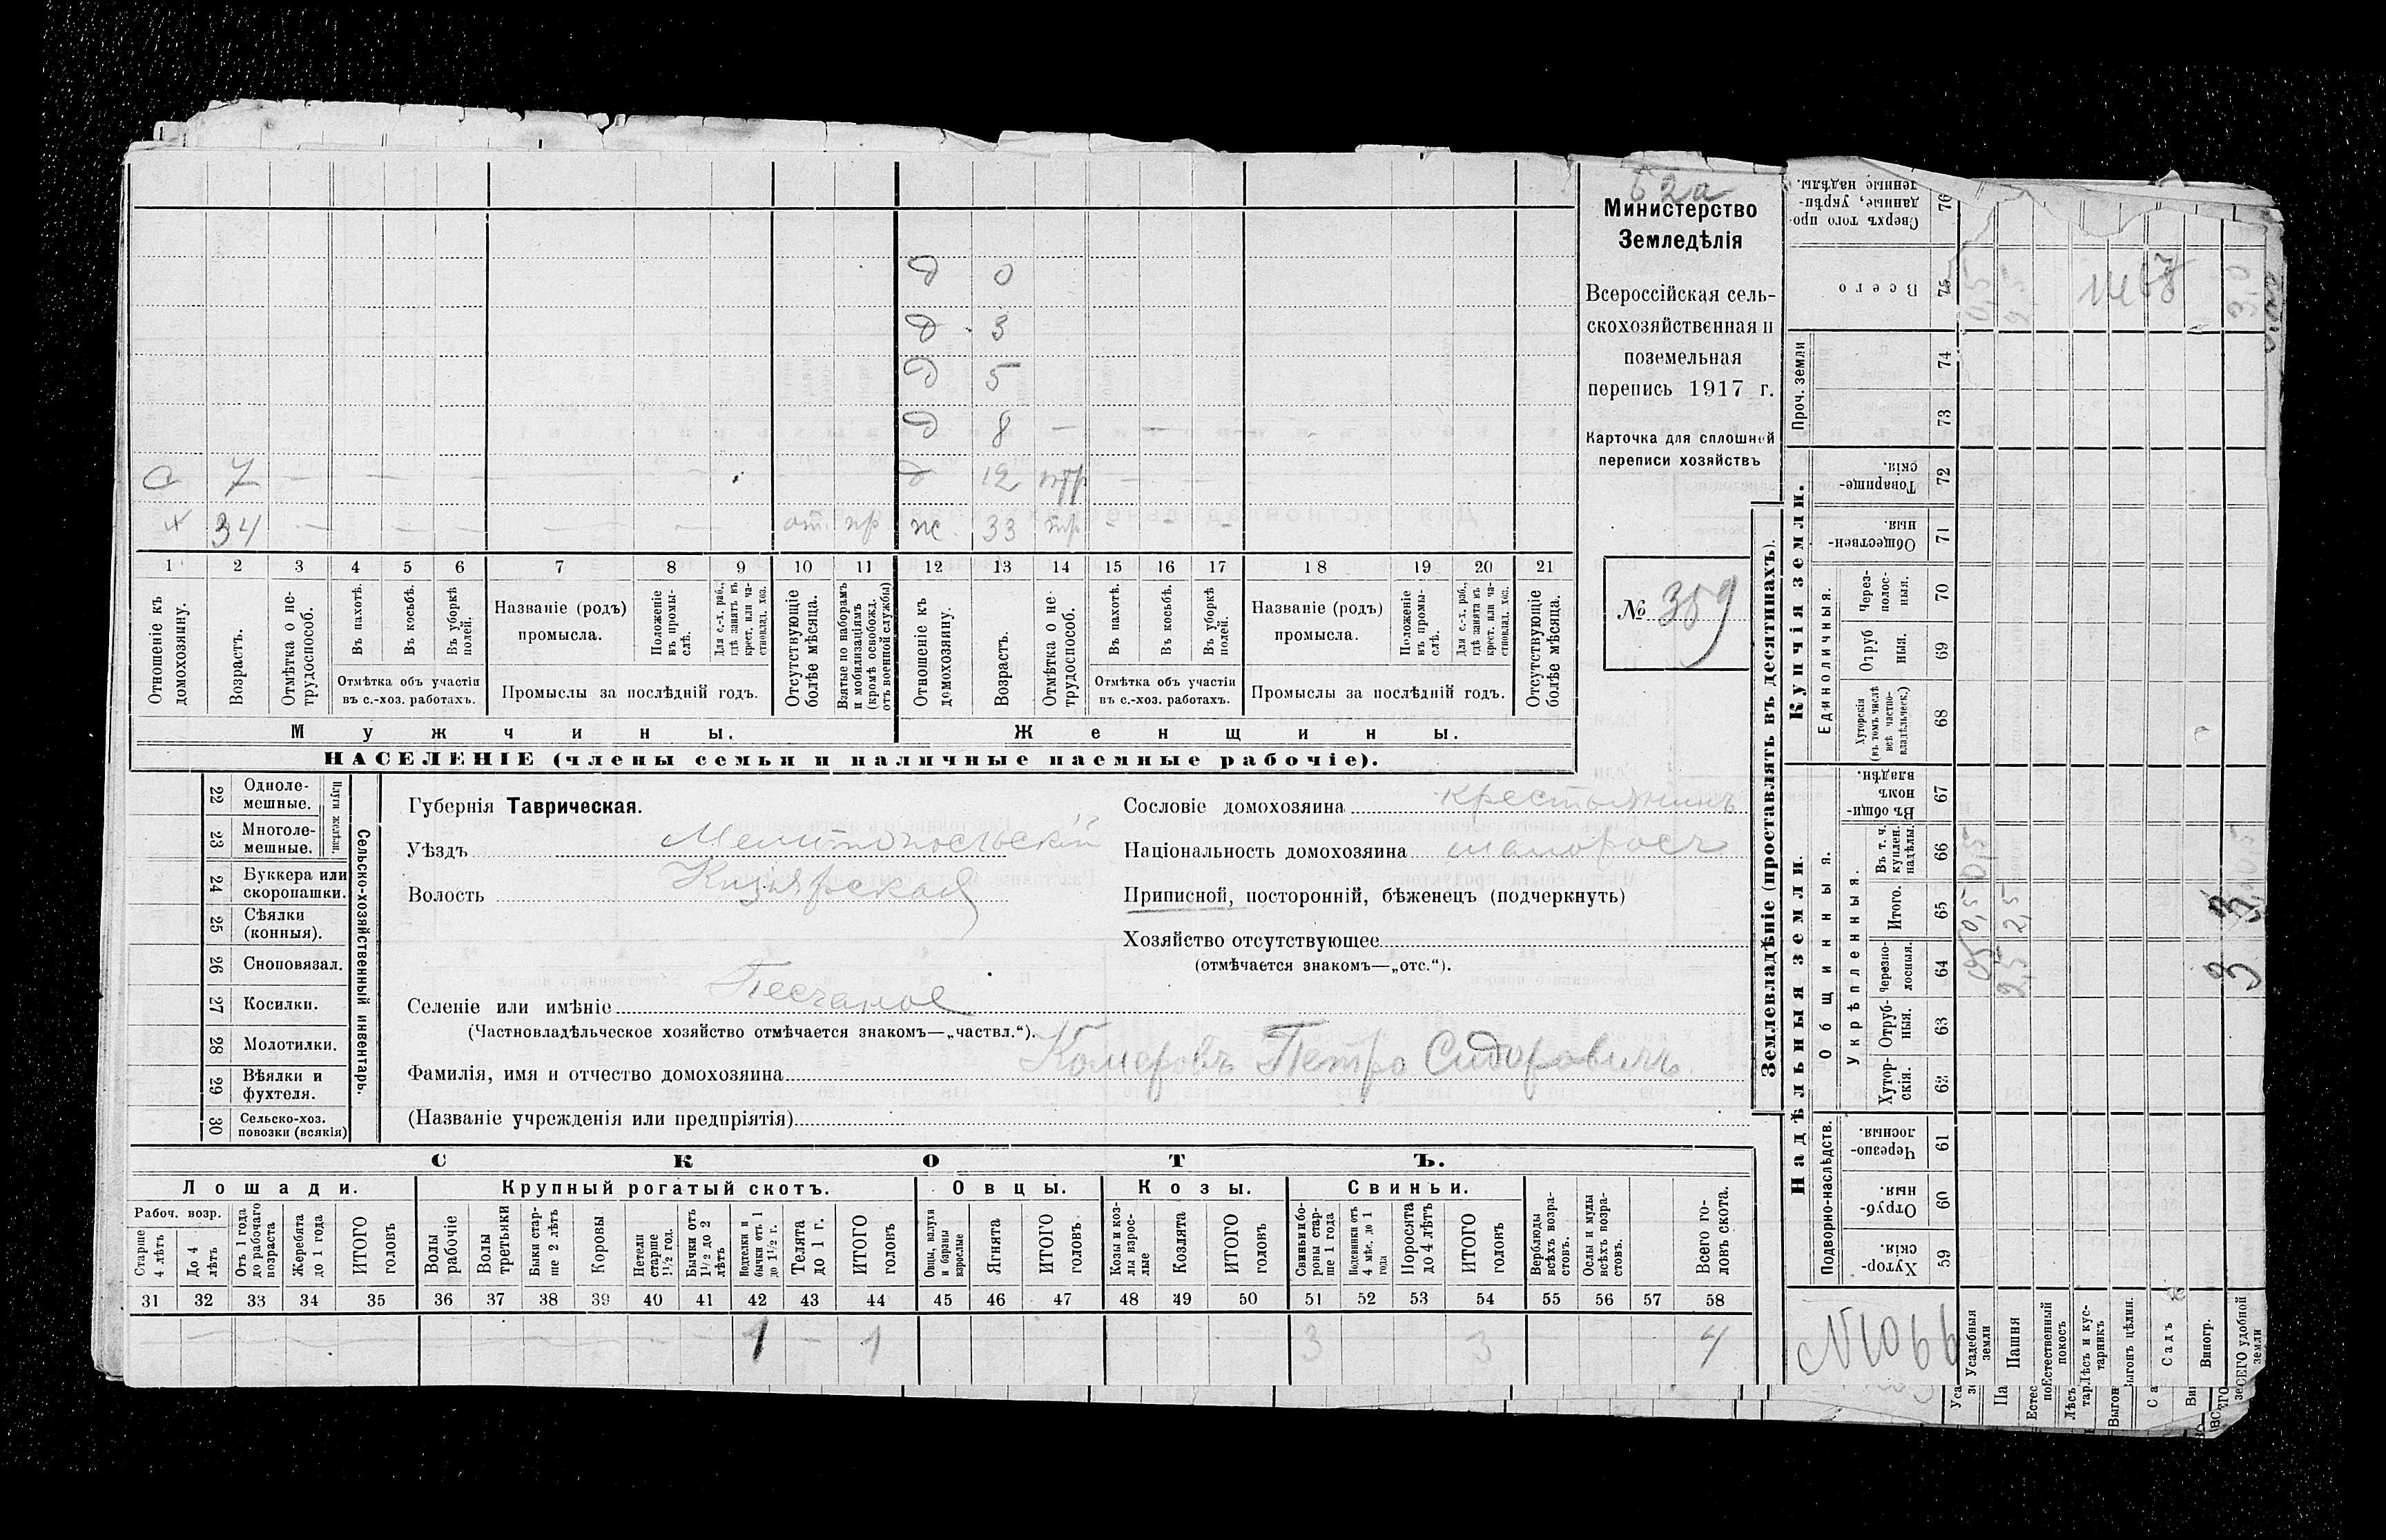 62а
Министерство
Земледѣлія
Всероссійская сель-
скохозяйственная и
поземельная
перепись 1917 г.
Карточка для сплошней
переписи хозяйствъ
№ 359
д 0
д 3
д 5
д 8 —
С 7 — — — — — д 12 — — —
х 34 — — — — — — от. пр ж. 33 — - -
1 2 3 4 5 6 7 8 9 10 11 12 13 14 15 16 17 18 19 20 21
Отношеніе къ домохозяину.
Возрастъ.
Отмѣтка о не-трудоспособ.
Въ пахотѣ.
Въ косьбѣ.
Въ уборкѣ полей.
Отмѣтка объ участіи
въ с.-хоз. работахъ.
Названіе (родъ)
промысла.
Положеніе въ промы-слѣ.
Для с.-х. раб., гдѣ занятъ въ крест. или ча-стновлад. хоз.
Промыслы за послѣдній годъ.
Отсутствующіе болѣе мѣсяца.
Взятые по наборамъ и мобилизаціямъ (кромѣ освобожд. отъ военной службы)
Отношеніе къ домохозяину.
Возрастъ.
Отмѣтка о не-трудоспособ.
Въ пахотѣ.
Въ косьбѣ.
Въ уборкѣ полей.
Отмѣтка объ участіи
въ с.-хоз. работахъ.
Названіе (родъ)
промысла.
Положеніе въ промы-слѣ.
Для с.-х. раб., гдѣ занята въ крест. или ча-стновлад. хоз.
Промыслы за послѣдній годъ.
Отсутствующіе болѣе мѣсяца.
Мужчины. Женщины.
НАСЕЛЕНІЕ (члены семьи и наличные наемные рабочіе).
22 Одноле-мешные.
23 Многоле-мешные.
Плуги желѣзн.
24 Буккера или скоропашки.
25 Сѣялки (конныя).
26 Сноповязал.
27 Косилки.
28 Молотилки.
29 Вѣялки и фухтеля.
30 Сельско-хоз. повозки (всякія)
Сельско-хозяйственный инвентарь.
Губернія Таврическая.
Уѣздъ Мелитопольскій
Волость Кизіярская
Селеніе или имѣніе Песчаное
(Частновладѣльческое хозяйство отмѣчается знакомъ—„частвл.“).
Сословіе домохозяина крестьянинъ
Національность домохозяина малоросъ
Приписной, посторонній, бѣженецъ (подчеркнуть)
Хозяйство отсутствующее
(отмѣчается знакомъ—„отс.“).
Фамилія, имя и отчество домохозяина Комеровъ Петро Сидоровичъ
(Названіе учрежденія или предпріятія)
СКОТЪ.
Лошади. Крупный рогатый скотъ. Овцы. Козы. Свиньи.
Рабоч. возр.
Старше 4 лѣтъ
До 4 лѣтъ
Отъ 1 года до рабочаго возраста
Жеребята до 1 года
ИТОГО головъ
Волы рабочіе
Волы третьяки
Быки стар-ше 2 лѣтъ
Коровы
Нетели старше 1½ год.
Бычки отъ 1½ до 2 лѣтъ
Подтелки и бычки отъ 1 до 1½ г.
Телята до 1 г.
ИТОГО головъ
Овцы, валухи и бараны взрослые
Ягнята
ИТОГО головъ
Козы и коз-лы взрос-лые
Козлята
ИТОГО головъ
Свиньи и бо-ровы стар-ше 1 года
Подсвинки отъ 4 мѣс. до 1 года
Поросята до 4 лѣтъ
ИТОГО головъ
Верблюды всѣхъ возра-стовъ.
Ослы и мулы всѣхъ возра-стовъ.
Всего го-ловъ скота.
31 32 33 34 35 36 37 38 39 40 41 42 43 44 45 46 47 48 49 50 51 52 53 54 55 56 57 58
1 — 1 3 3 4
Землевладѣніе (проставлять въ десятинахъ).
Купчія земли.
Надѣльныя земли.
Сверхъ того про-данные, укрѣп-ленные надѣлы. 76
Всего 75 0,5 2,5 3,0
Проч. земли 74 73
Товарище-скія. 72
Обществен-ныя. 71
Единоличныя.
Через-полос-ныя. 70
Отруб ныя. 69
Хуторскія (въ томъ числѣ всѣ частно-владѣльческ.) 68
Общинныя.
Въ общи-номъ владѣн. 67
Укрѣпленныя.
Въ т. ч. куплен. надѣлы. 66 0,5
Итого. 65 0,5 2,5 3
Черезпо-лосныя. 64 0,5 2,5 3
Отруб-ныя. 63
Хутор-скія. 62
Подворно-наслѣдств.
Черезпо-лосныя. 61
Отруб-ныя. 60
Хутор-скія. 59
Усадебныя земли
Пашня
Естественный покосъ
Лѣсъ и кус-тарникъ
Выгонъ цѣлин.
Садъ
Виногр.
ВСЕГО удобной земли